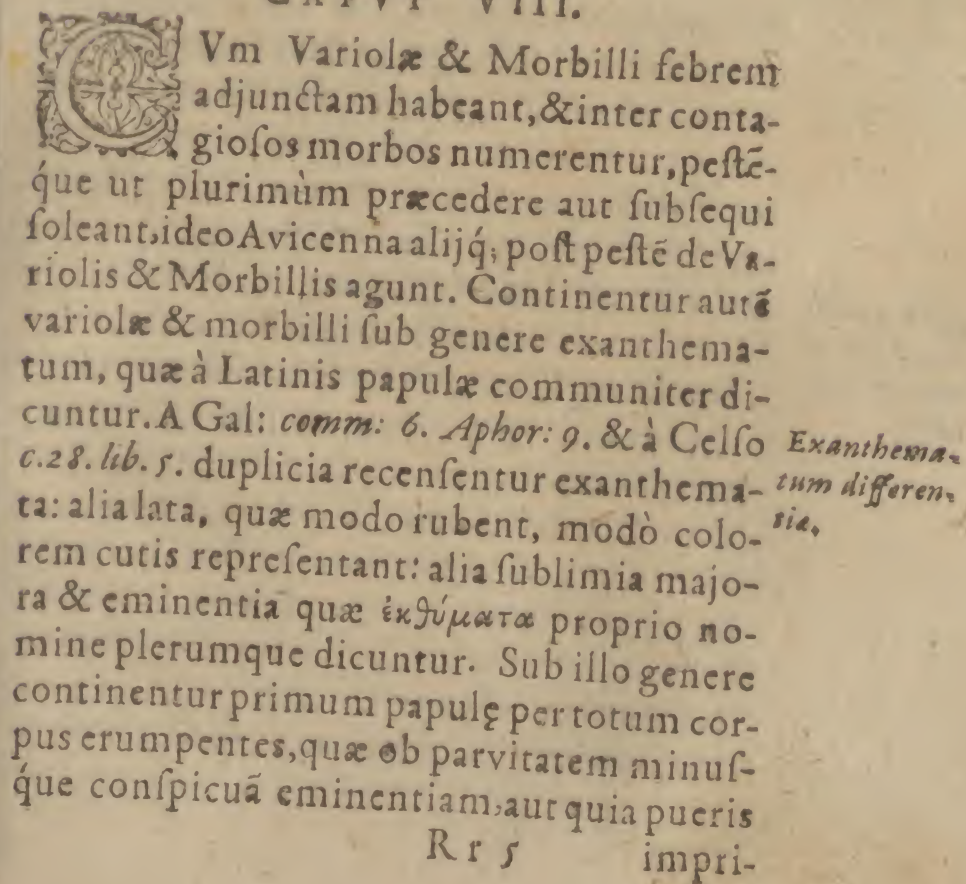 CAPVT VIII.
CVm Variolæ & Morbilli febrem
adjunctam habeant, & inter conta-
gioſos morbos numerentur, peſtẽ-
q́ue ut plurimùm præcedere aut ſubſequi
ſoleant, ideo Avicenna alijq́; poſt peſtẽ de Va-
riolis & Morbillis agunt. Continentur autẽ
variolæ & morbilli ſub genere exanthema-
tum, quæ à Latinis papulæ communiter di-
cuntur. A Gal: comm: 6. Aphor: 9. & à Celſo
c. 28. lib. 5. duplicia recenſentur exanthema-
ta: alia lata, quæ modo rubent, modò colo-
rem cutis repreſentant: alia ſublimia majo-
ra & eminentia quæ ἐκθύματα proprio no-
mine plerumque dicuntur. Sub illo genere
continentur primum papulę per totum cor-
pus erumpentes, quæ ob parvitatem minuſ-
q́ue conſpicuã eminentiam, aut quia pueris
Rr 5 impri-
Exanthema-
tum differen-
tiæ.